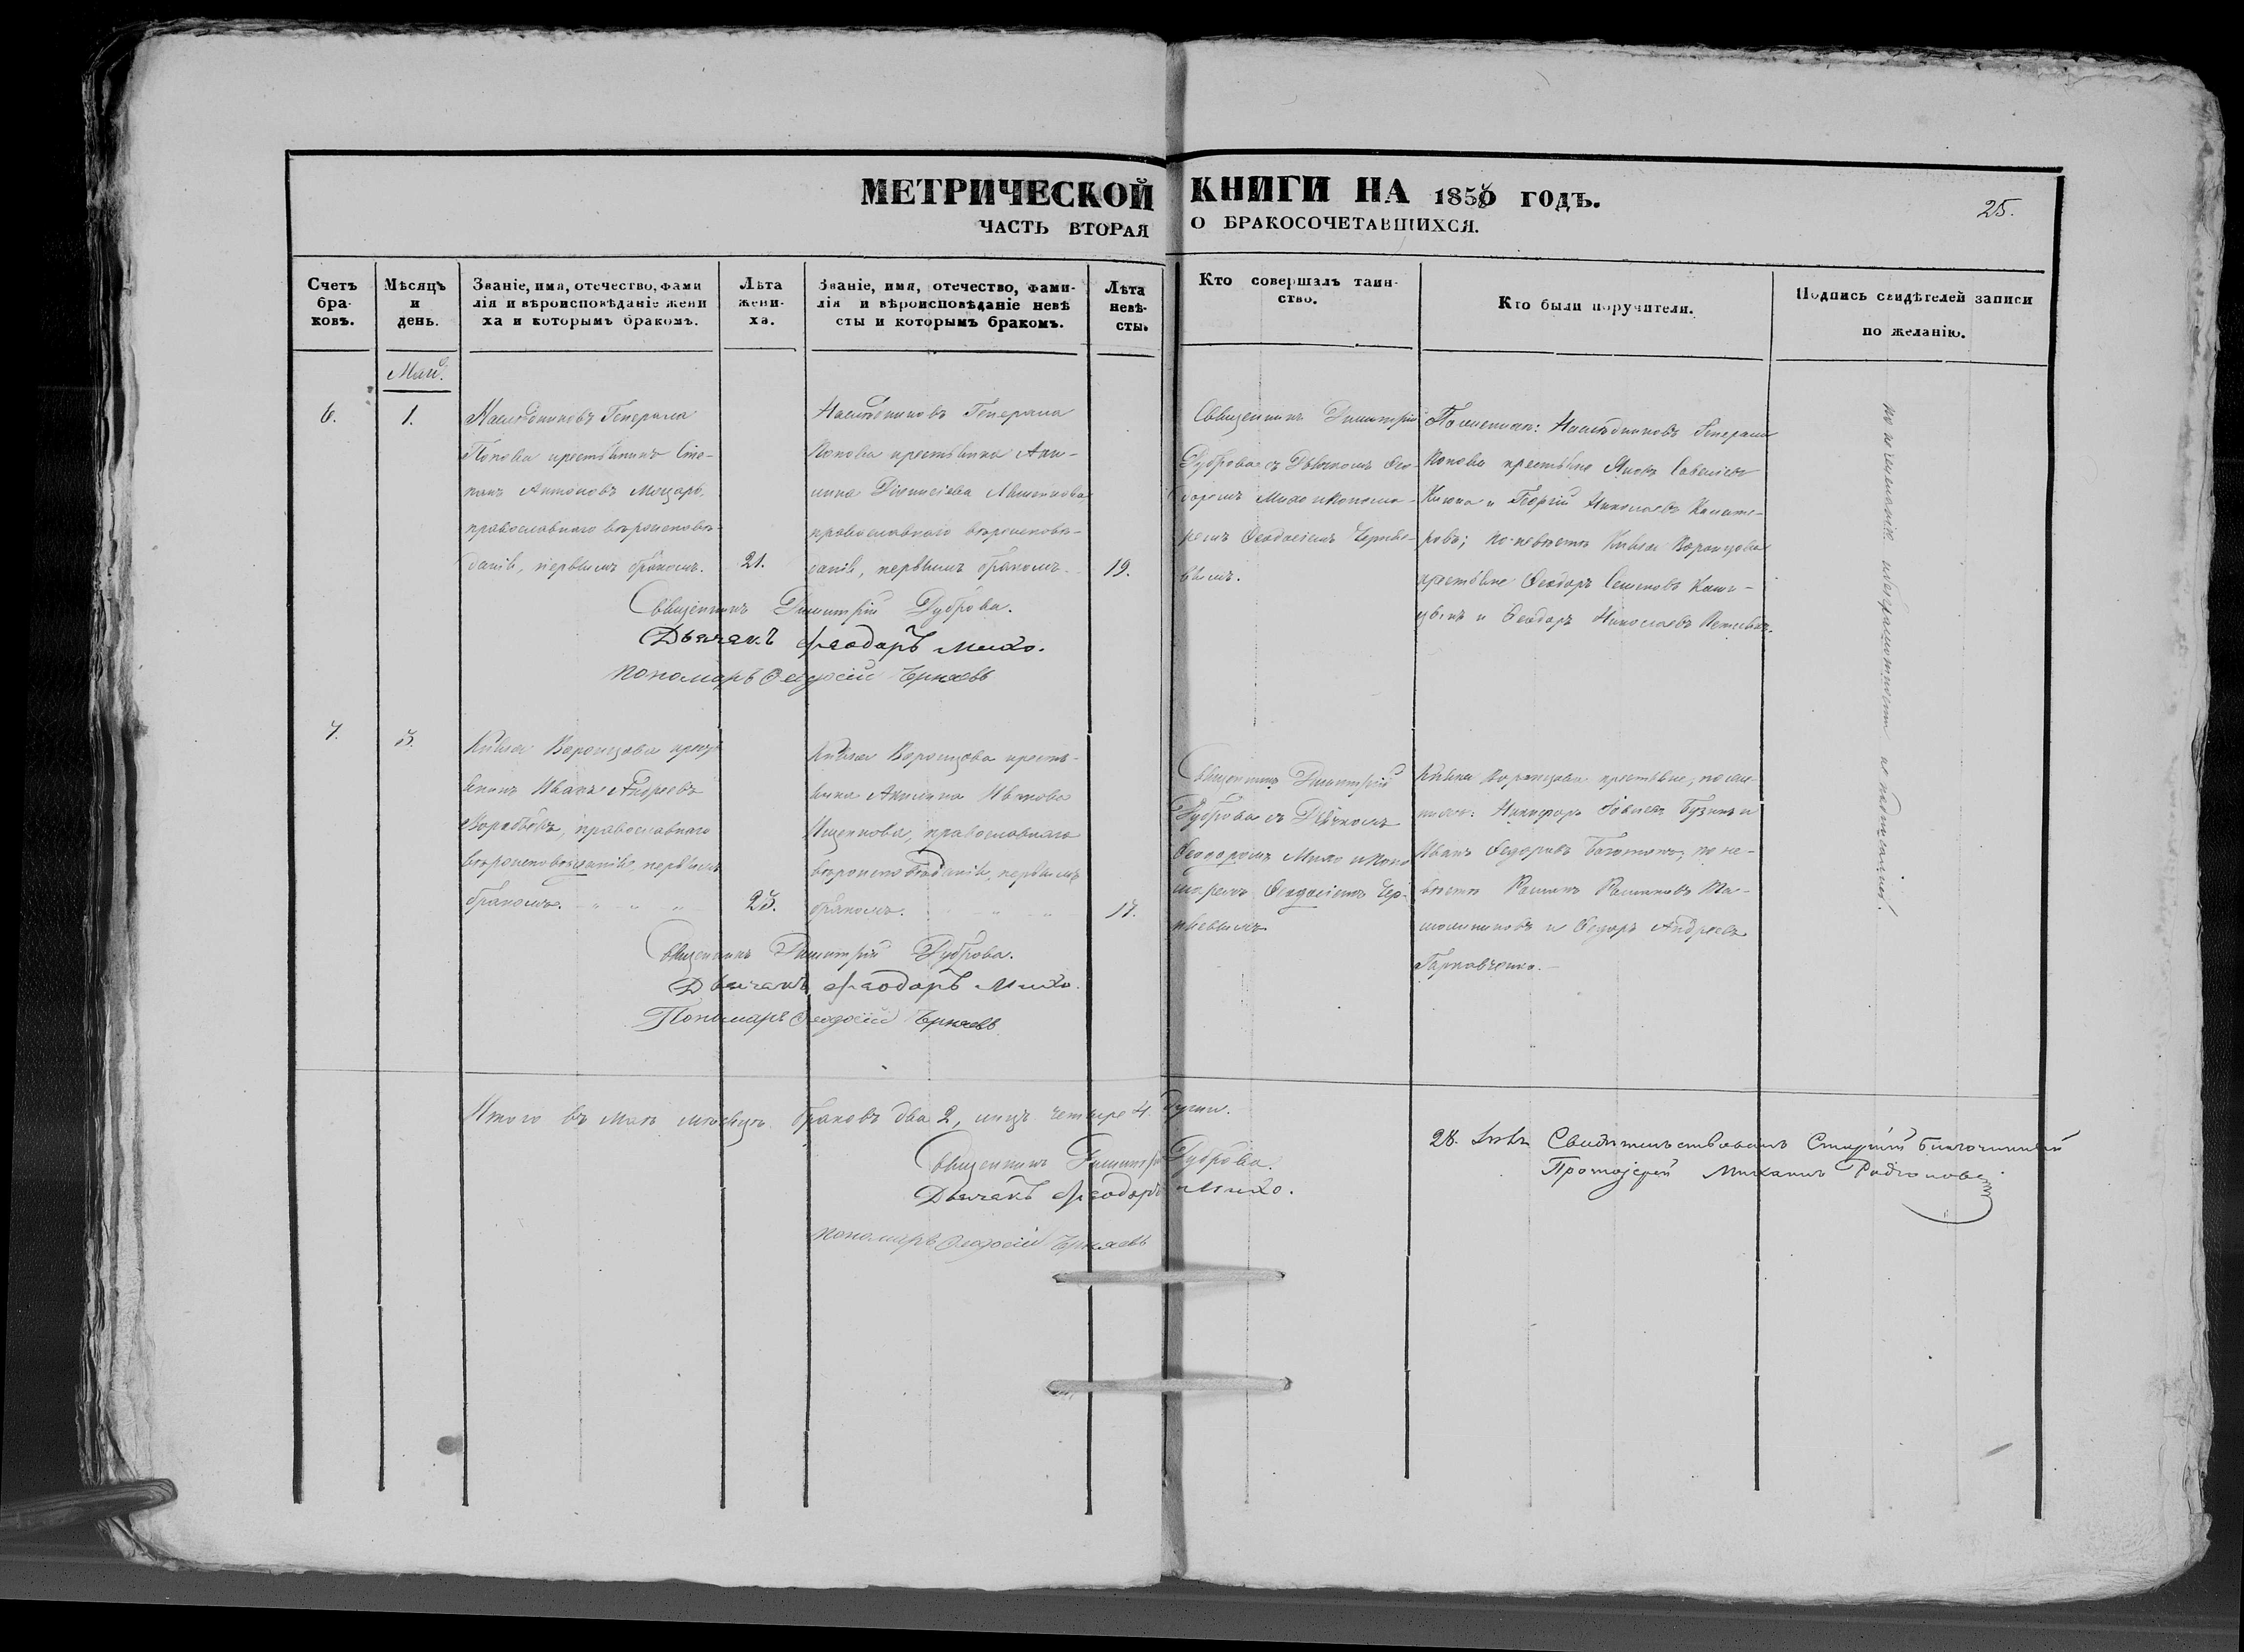 МЕТРИЧЕСКОЙ КНИГИ НА 1856 ГОДЪ.
25.
ЧАСТЬ ВТОРАЯ О БРАКОСОЧЕТАВШИХСЯ.
Счетъ
бра-
ковъ.
Мѣсяцъ
и
день.
Званіе, имя, отечество, фами
лія и вѣроисповѣданіе жени
ха и которымъ бракомъ.
Лѣта
жени-
ха.
Званіе, имя, отечество, фами-
лія и вѣроисповѣданіе невѣ
сты и которымъ бракомъ.
Лѣта
невѣ-
сты.
Кто совершалъ таин-
ство.
Кто были поручители.
Подпись свидѣтелей записи
по желанію.
Май.
6.
1.
Наслѣдниковъ Генерала
Попова крестьянинъ Сте-
панъ Антоновъ
православнаго вѣроисповѣ-
данія, первымъ бракомъ.
21.
Наслѣдниковъ Генерала
Попова крестьянка Аки-
лина Діонисіева
православнаго вѣроисповѣ-
данія, первымъ бракомъ.
19.
Священникъ Димитрій
Дуброва съ Дьячкомъ Ѳео-
доромъ Михо и Понома-
ремъ Ѳеодосіемъ Черня-
вымъ.
Наслѣдниковъ Генерала
Попова крестьяне Яковъ Савельевъ
и Георгій Николаевъ
по невѣстѣ Князя Воронцова
крестьяне Ѳеодоръ Семеновъ
и Ѳеодоръ Николаевъ
Священникъ Димитрій Дуброва.
Дьячекъ Ѳеодоръ Михо.
Пономарь Ѳеодосій
7.
Князя Воронцова кресть
янинъ Иванъ Андреевъ
Воробьевъ, православнаго
вѣроисповѣданія, первымъ
бракомъ.
23.
Князя Воронцова кресть-
янка Акилина
Ищенкова, православнаго
вѣроисповѣданія, первымъ
бракомъ.
17.
Священникъ Димитрій
Дуброва съ Дьячкомъ
Ѳеодоромъ Михо и Поно
маремъ Ѳеодосіемъ Чер-
нявымъ
Князя Воронцова крестьяне, по же-
нихѣ: Никифоръ
Иванъ Ѳедоровъ по не-
вѣстѣ Романъ Романовъ
и Ѳедоръ Андреевъ
Гарковченко.
Священникъ Димитрій Дуброва.
Дьячекъ Ѳеодоръ Михо.
Пономарь Ѳеодосій
по желанію
Итого въ маѣ мѣсяцѣ браковъ два 2, лицъ четыре 4. души.
Священникъ Димитрій Дуброва.
Дьячекъ Ѳеодоръ Михо.
Пономарь Ѳеодосій
28. Свидѣтельствовалъ Старшій Благочинный
Протоіерей Михаилъ Родіоновъ